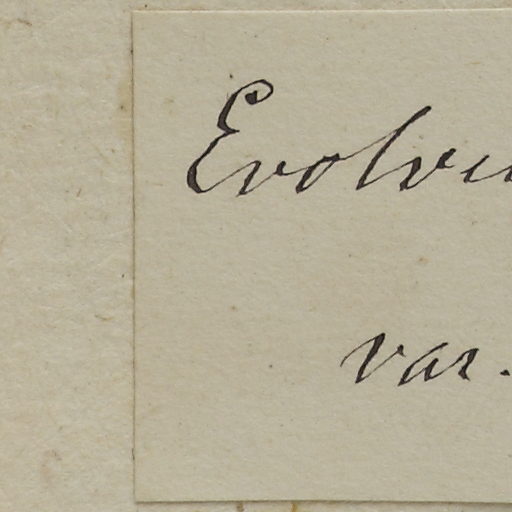 Evolvu
var.